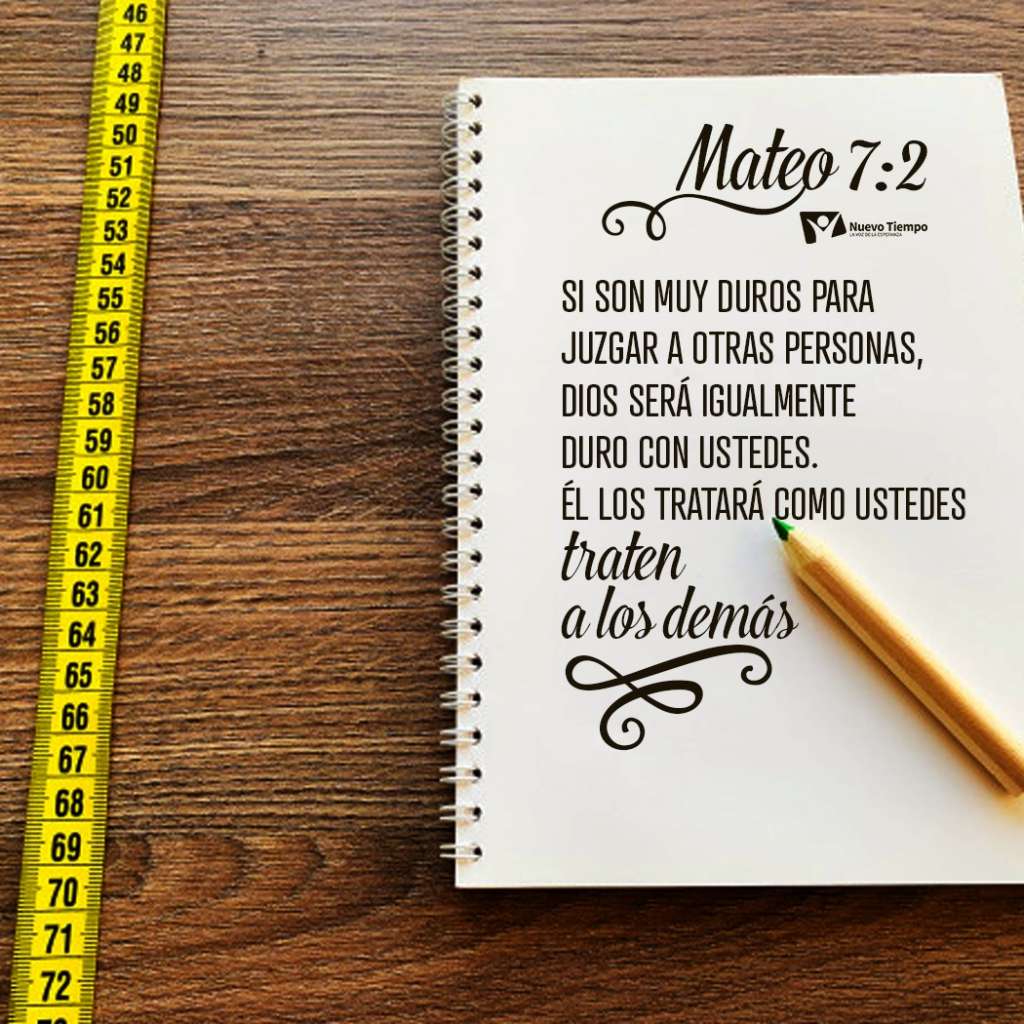 46
47
48
49
50
51
52
53
54
55
56
57
58
59
60
61
62
63
64
65
66
67
68
69
70
71
72
Mateo 7:2
Nuevo Tiempo
LA VOZ DE LA ESPERANZA
SI SON MUY DUROS PARA
JUZGAR A OTRAS PERSONAS,
DIOS SERÁ IGUALMENTE
DURO CON USTEDES.
ÉL LOS TRATARÁ COMO USTEDES
traten
a los demás